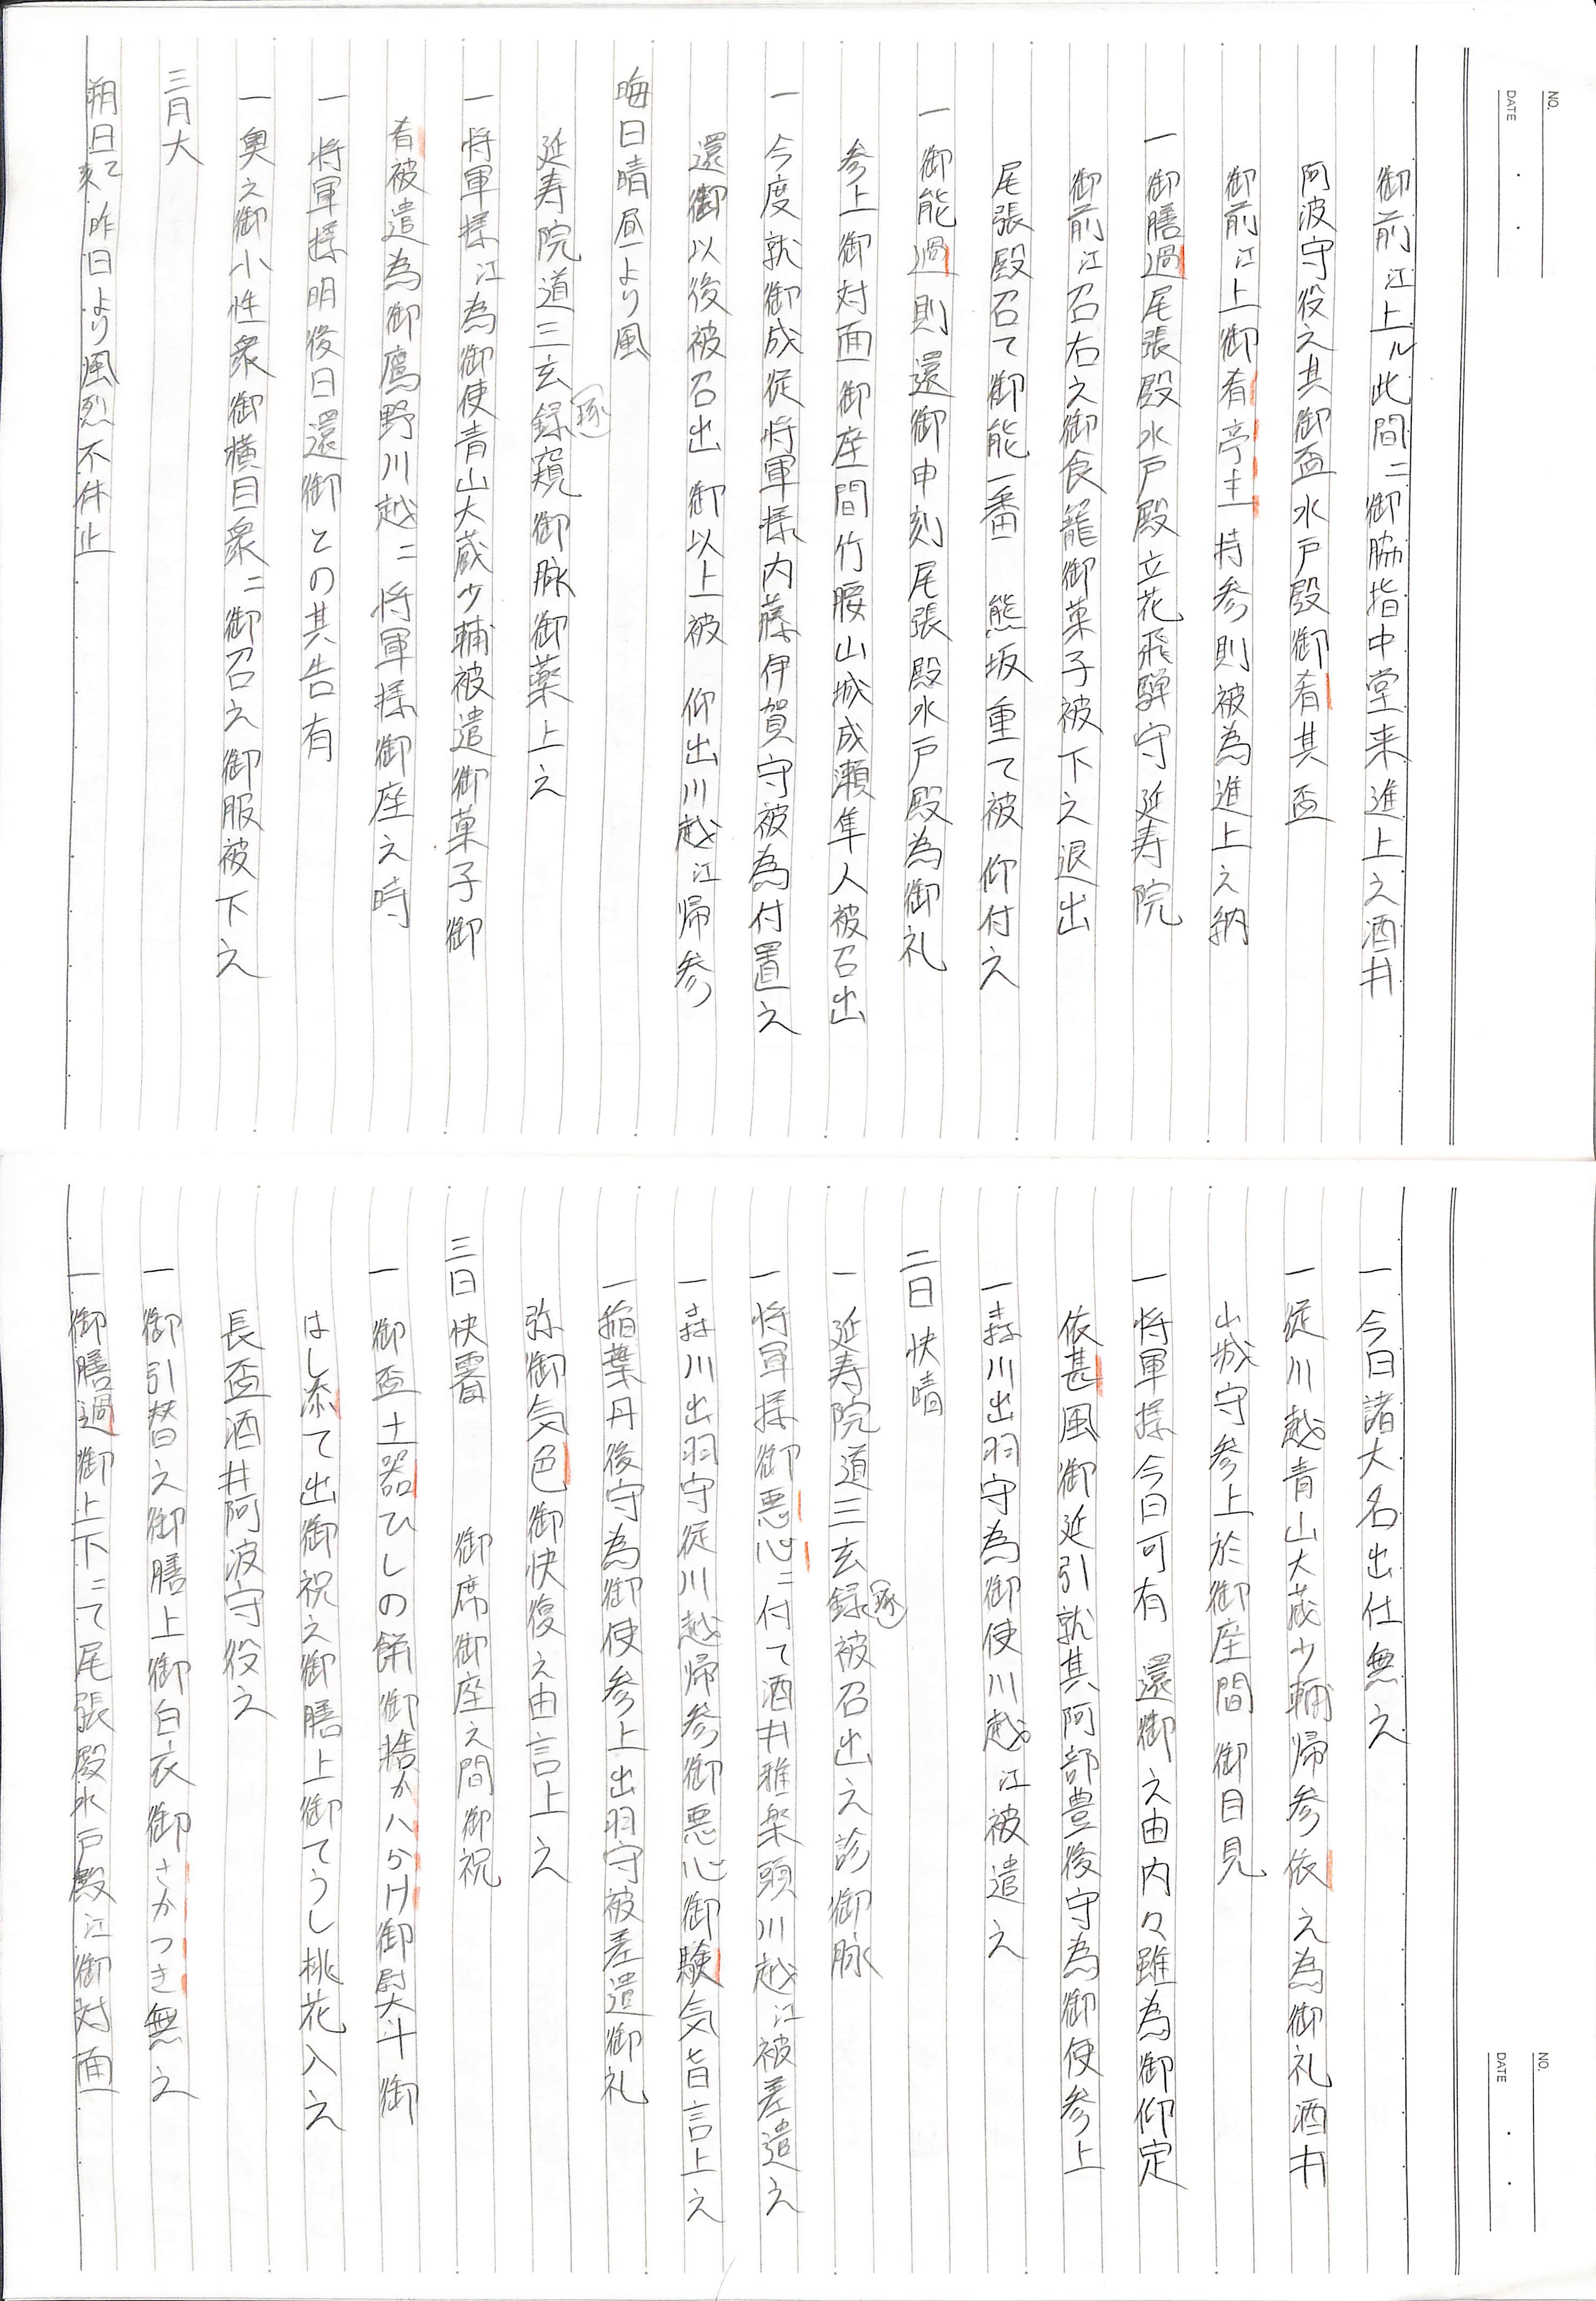 NO.
DATE
御前江上ル此間ニ御脇指中堂来進上之酒井
阿波守役之其御盃水戸殿御肴其盃
御前江上御肴亭主持参則被為進上之納
一御膳過尾張殿水戸殿立花飛騨守延寿院
御前江召右之御食籠御菓子被下之退出
尾張殿召て御能一番 熊坂重て被 仰付之
一御能過則還御申刻尾張殿水戸殿為御礼
参上御対面御座間竹腰山城成瀬隼人被召出
一今度就御成従将軍様内藤伊賀守被為付置之
還御以後被召出御以上被 仰出川越江帰参
晦日晴昼より風
延寿院道三玄録(琢)窺御脉御薬上之
一将軍様江為御使青山大蔵少輔被遣御菓子御
肴被遣為御鷹野川越ニ将軍様御座之時
一将軍様明後日還御との其告有
一奥之御小性衆御横目衆ニ御召之御服被下之
三月大
朔日乙亥昨日より風烈不休止
NO.
DATE
一今日諸大名出仕無之
一従川越青山大蔵少輔帰参依之為御礼酒井
山城守参上於御座間御目見
一将軍様今日可有 還御之由内々雖為御仰定
依甚風御延引就其阿部豊後守為御使参上
一森川出羽守為御使川越江被遣之
二日快晴
一延寿院道三玄録(琢)被召出之診御脉
一将軍様御悪心ニ付て酒井雅楽頭川越江被差遣之
一森川出羽守従川越帰参御悪心御験気旨言上之
一稲葉丹後守為御使参上出羽守被差遣御礼
弥御気色御快復之由言上之
三日快霽 御席御座之間御祝
一御盃土器ひしの餅御捨かハらけ御熨斗御
はし添て出御祝之御膳上御てうし桃花入之
長盃酒井阿波守役之
一御引替之御膳上御白衣御さかつき無之
一御膳過御上下ニて尾張殿水戸殿江御対面